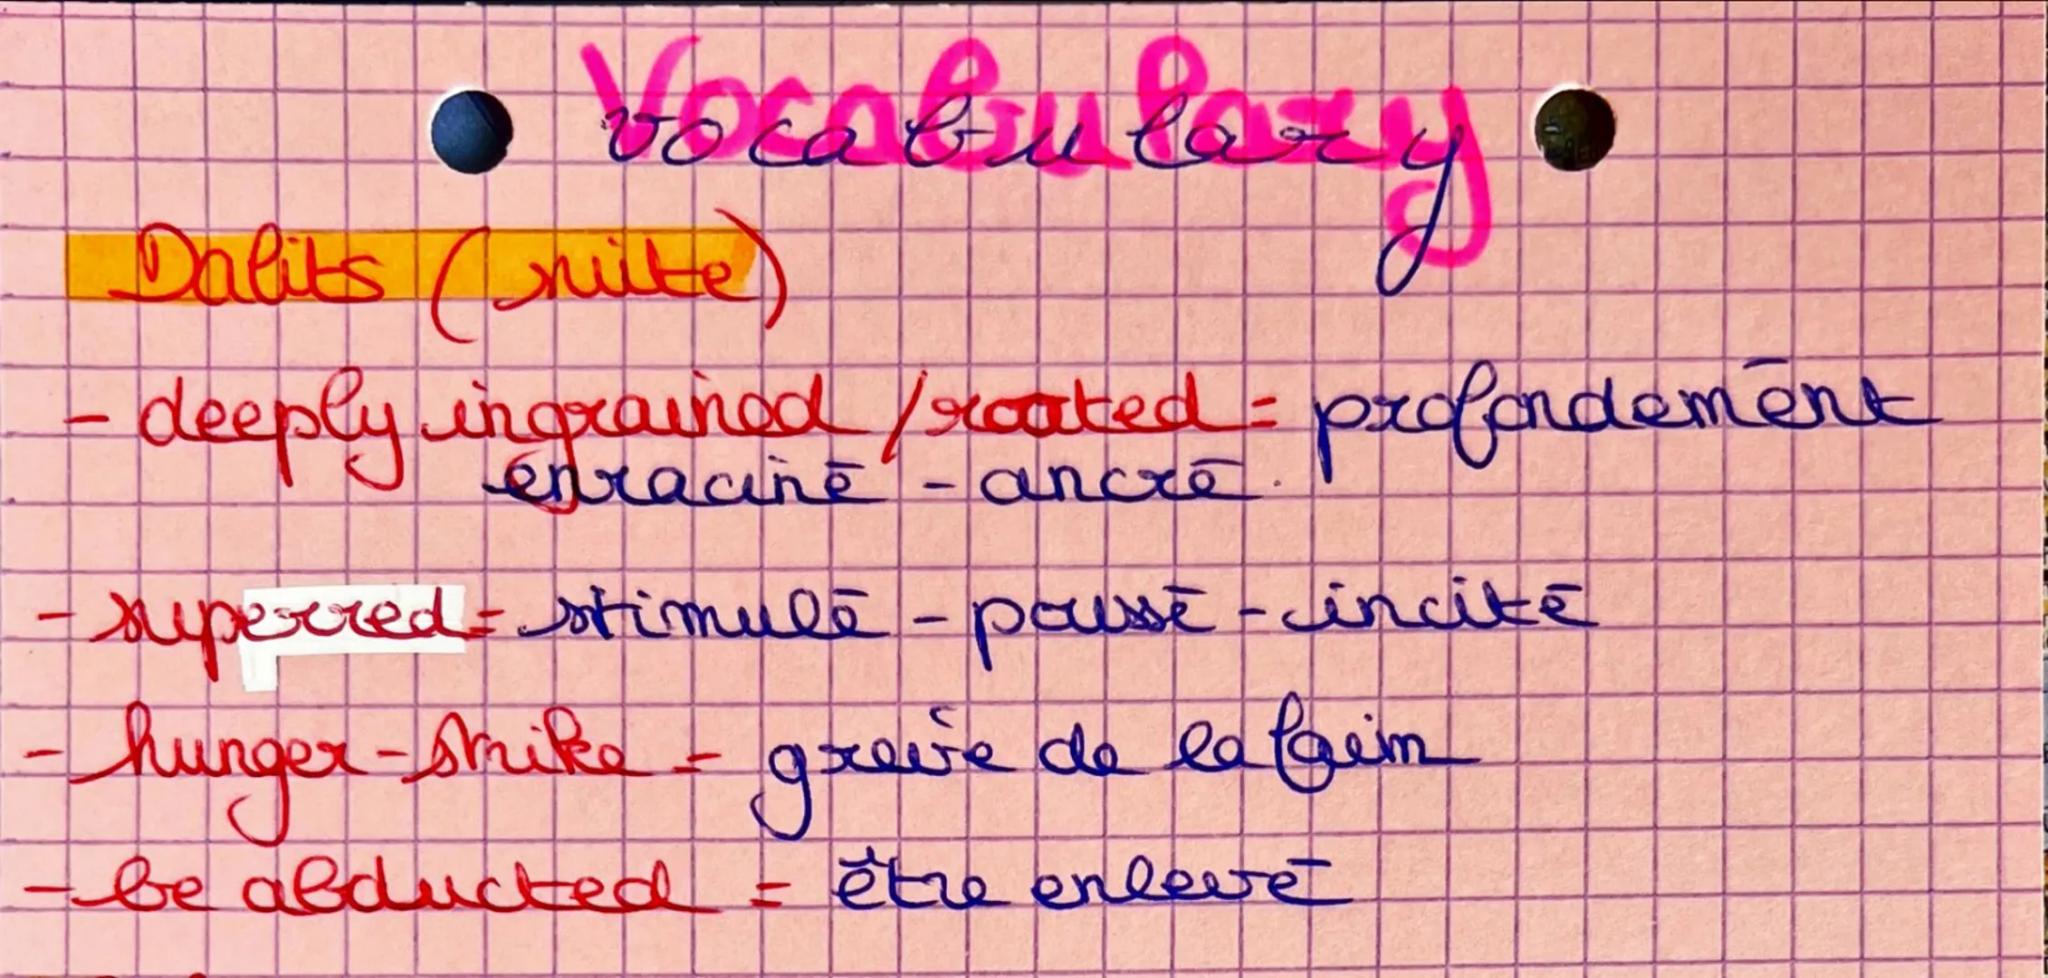 Vocabulary
Dalits (suite)
- deeply ingrained / rooted = profondément
enraciné - ancré.
- superred = stimulé - poussé - incité
- hunger-strike = grève de la faim
- be abducted = être enlevé